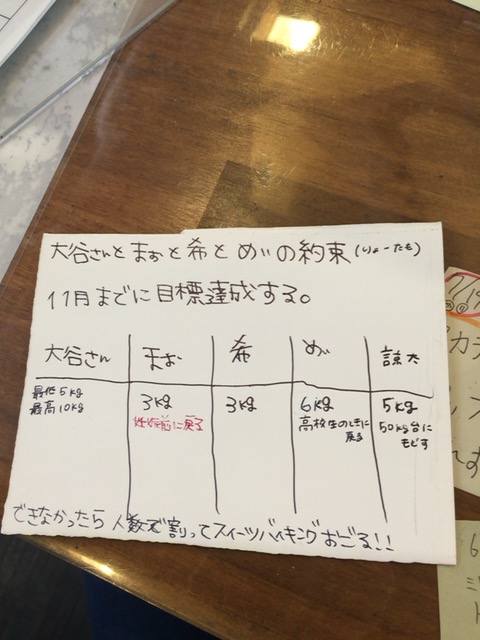 大谷さんとまおと希とめいの約束(りょーたも)
11月までに目標達成する。
大谷さん まお 希 めい 諒太
最低5kg
最高10kg
3kg
妊娠前に戻る
3kg
6kg
高校生のときに
戻る
5kg
50kg台に
もどす
できなかったら人数で割ってスイーツバイキングおごる!!
7/19
カラ